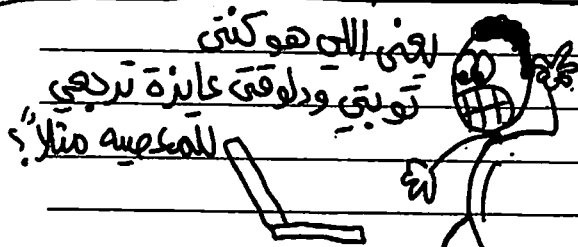 يعنى اللي هو كنتى
توبتي ودلوقتى عايزة ترجعي
للمعصيه مثلاً؟